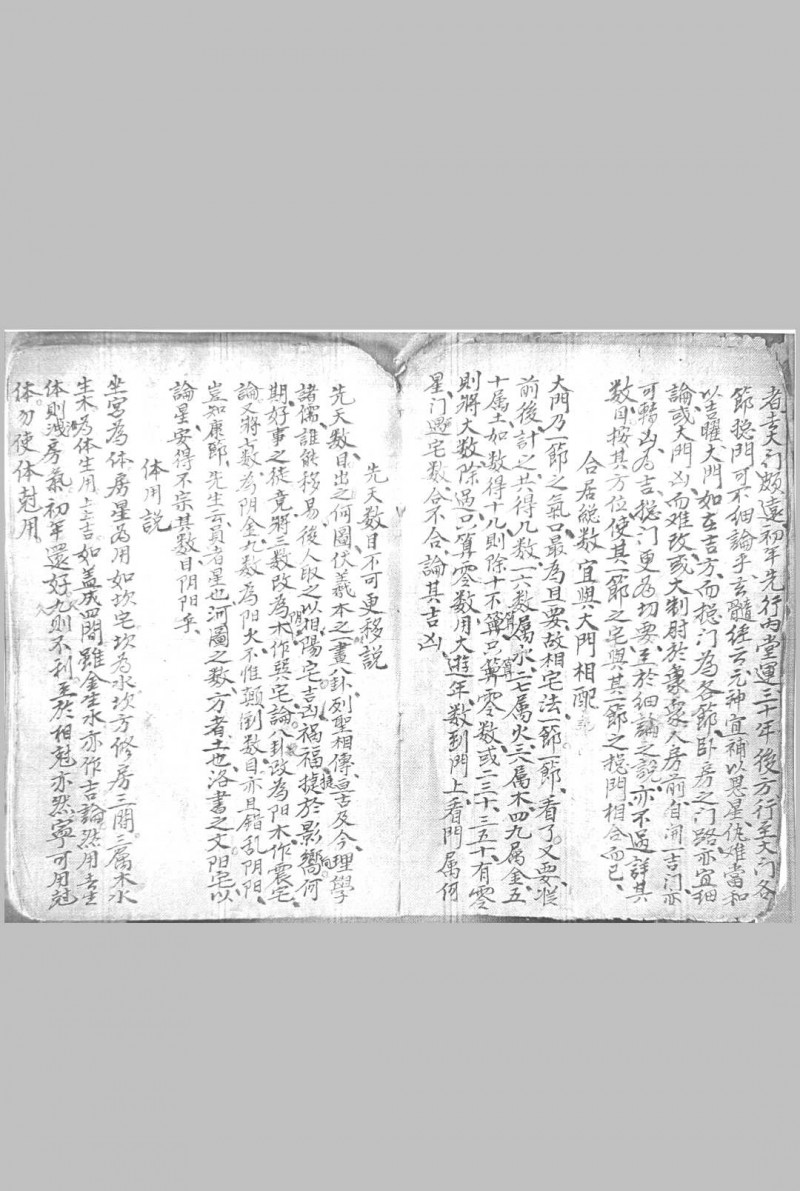 者言大门頗遠初年先行內堂運三十年後方行至大门各
節總門可不細論乎玄髓徒云元神宜補以恩星仇难當和
以吉曜大门如在吉方而總门為各節卧房之门路亦宜細
論或大门凶而难改或大制肘於象家人房前自開一吉门亦
可轉凶為吉總门更為切要至於細論之説亦不過詳其
数目按其方位使其一節之宅與其一節之總門相合而已
合居総数宜與大門相配
大門乃一節之氣口最為且要故相宅法一節一節看了又要從
前後計之共得几数一六数属水二七属火三八属木四九属金五
十属土如数得十几則除十不筭只筭零数或二三十三五十有零
則將大数除過只算零数用大遊年数到門上看門属何
星门遇宅数合不合論其吉凶
先天数目不可更移説
先天数目出之河圖伏羲本之畫八卦列聖相傳亘古及今理學
諸儒誰能移易後人取之以相陰陽宅吉凶禍福捷於影嚮何
期好事之徒竟將三数改為木作巽宅論八卦改為阳木作震宅
論又將七数為阴金九数為阳火不惟顛倒数目亦且錯乱阴阳
豈知康節先生云員者星也河圖之数方者土也洛書之文阳宅以
論星安得不宗其数目阴阳乎
体用説
坐宮為体房星為用如坎宅坎為水坎方修房三間三属木水
生木為体生用上吉如盖成四間雖金生水亦作吉論然用去生
体則洩房氣初年還好久則不利至於相尅亦然寧可用尅
体勿使体尅用